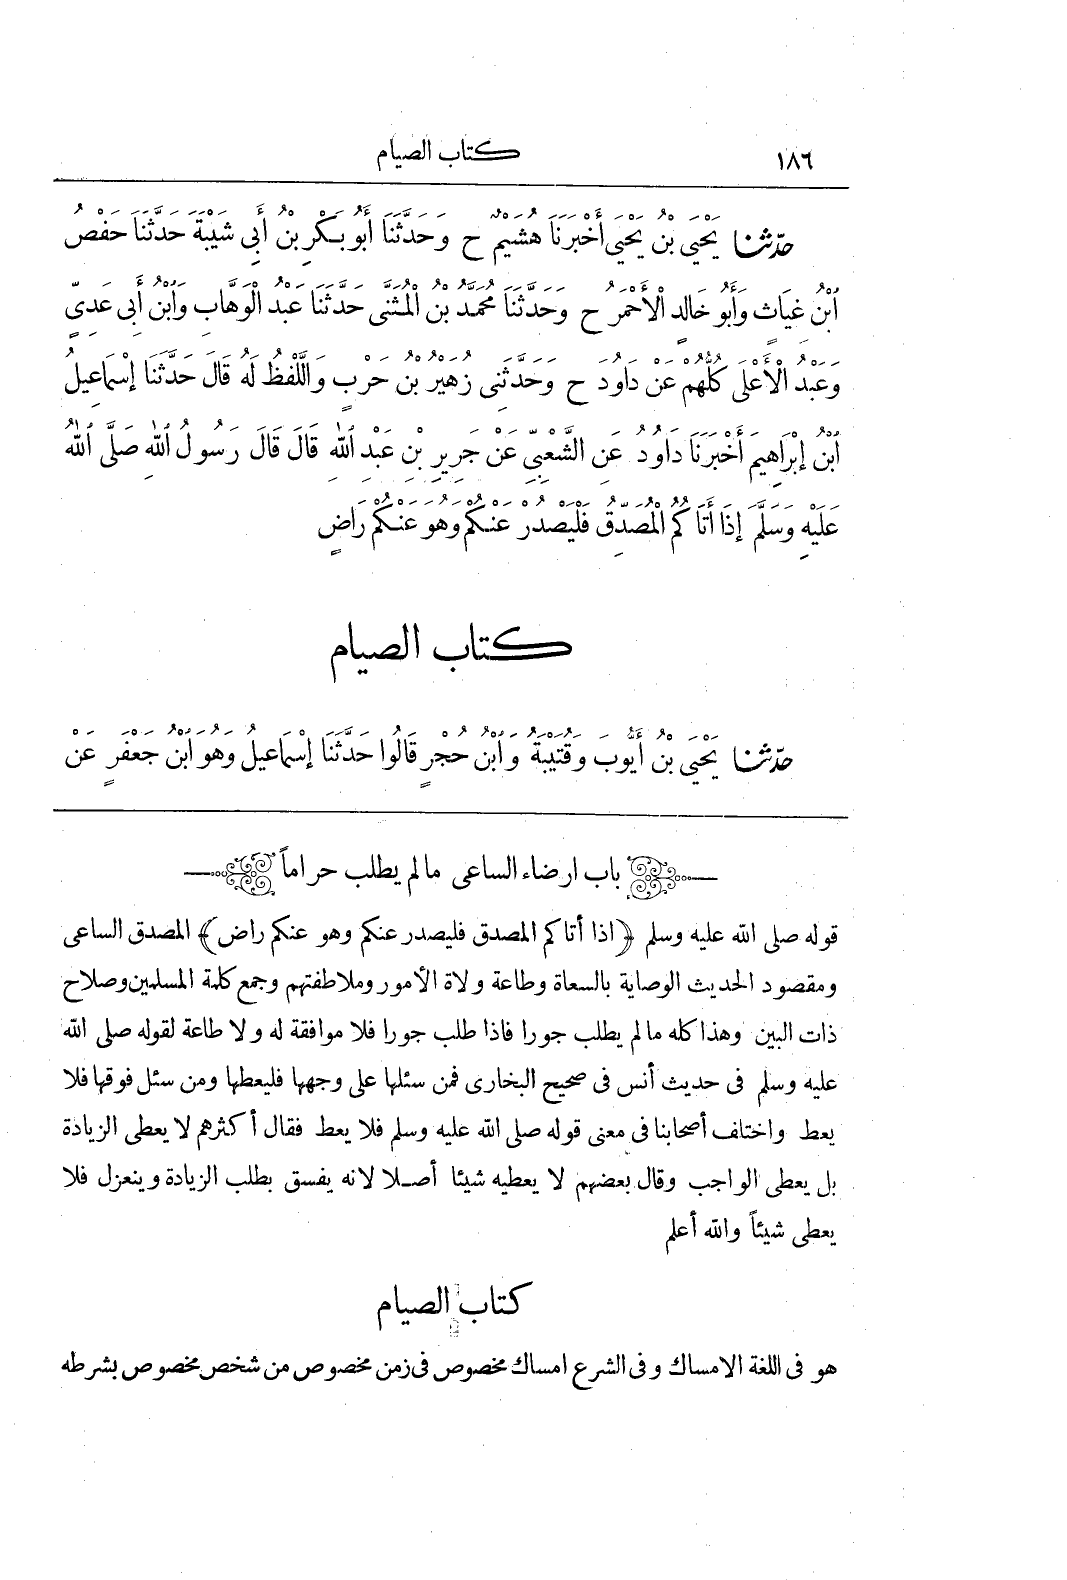 ١٨٦ كتاب الصيام
حدّثنا يَحْيَى بْنُ يَحْيَى أَخْبَرَنَا هُشَيْمٌ ح وَحَدَّثَنَا أَبُو بَكْرِ بْنُ أَبِي شَيْبَةَ حَدَّثَنَا حَفْصُ
ابْنُ غِيَاثٍ وَأَبُو خَالِدٍ الْأَحْمَرُ ح وَحَدَّثَنَا مُحَمَّدُ بْنُ الْمُثَنَّى حَدَّثَنَا عَبْدُ الْوَهَّابِ وَابْنُ أَبِي عَدِيٍّ
وَعَبْدُ الْأَعْلَى كُلُّهُمْ عَنْ دَاوُدَ ح وَحَدَّثَنِى زُهَيْرُ بْنُ حَرْبٍ وَاللَّفْظُ لَهُ قَالَ حَدَّثَنَا إِسْمَاعِيلُ
ابْنُ إِبْرَاهِيمَ أَخْبَرَنَا دَاوُدُ عَنِ الشَّعْبِيِّ عَنْ جَرِيرِ بْنِ عَبْدِ اللهِ قَالَ قَالَ رَسُولُ اللهِ صَلَّى اللهُ
عَلَيْهِ وَسَلَّمَ إِذَا أَتَاكُمُ الْمُصَدِّقُ فَلْيَصْدُرْ عَنْكُمْ وَهُوَ عَنْكُمْ رَاضٍ
كتاب الصيام
حدّثنا يَحْيَى بْنُ أَيُّوبَ وَقُتَيْبَةُ وَابْنُ حُجْرٍ قَالُوا حَدَّثَنَا إِسْمَاعِيلُ وَهُوَ ابْنُ جَعْفَرٍ عَنْ
باب ارضاء الساعى مالم يطلب حراماً
قوله صلى الله عليه وسلم ﴿اذا أتاكم المصدق فليصدر عنكم وهو عنكم راض﴾ المصدق الساعى
ومقصود الحديث الوصاية بالسعاة وطاعة ولاة الأمور وملاطفتهم وجمع كلمة المسلمين وصلاح
ذات البين وهذا كله مالم يطلب جورا فاذا طلب جورا فلا موافقة له ولا طاعة لقوله صلى الله
عليه وسلم فى حديث أنس فى صحيح البخارى فمن سئلها على وجهها فليعطها ومن سئل فوقها فلا
يعط واختلف أصحابنا فى معنى قوله صلى الله عليه وسلم فلا يعط فقال أكثرهم لا يعطى الزيادة
بل يعطى الواجب وقال بعضهم لا يعطيه شيئا أصلا لانه يفسق بطلب الزيادة وينعزل فلا
يعطى شيئاً والله أعلم
كتاب الصيام
هو فى اللغة الامساك وفى الشرع امساك مخصوص فى زمن مخصوص من شخص مخصوص بشرطه